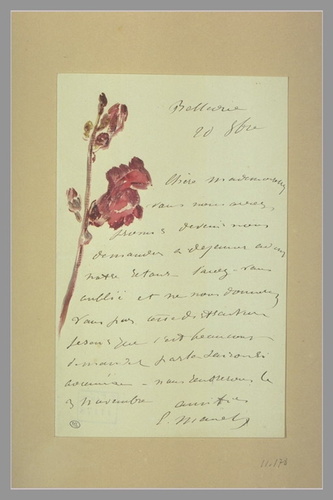 Bellevue
20 8bre
Chère Mademoiselle
vous nous aviez
promis devenir nous
demander à déjeuner avant
notre retour. L'avez-vous
oublié et ne nous donnerez
vous pas cette
que c'est beaucoup
demander par la saison
nous rentrerons le
3 Novembre amitiés
E. Manet